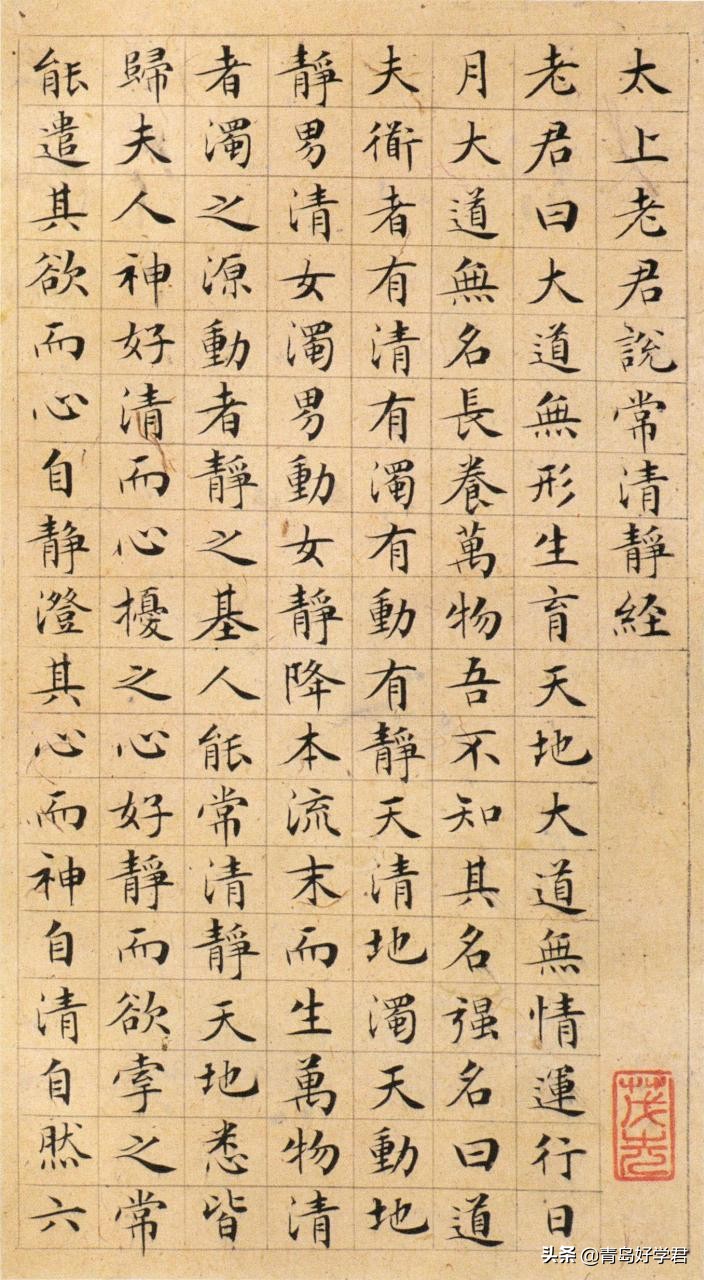 太上老君說常清靜経
老君曰大道無形生育天地大道無情運行日
月大道無名長養萬物吾不知其名强名曰道
夫衜者有清有濁有動有靜天清地濁天動地
靜男清女濁男動女靜降本流末而生萬物清
者濁之源動者靜之基人能常清靜天地悉皆
歸夫人神好清而心擾之心好靜而欲牽之常
能遣其欲而心自静澄其心而神自清自然六
茂先
头条 @青岛好学君